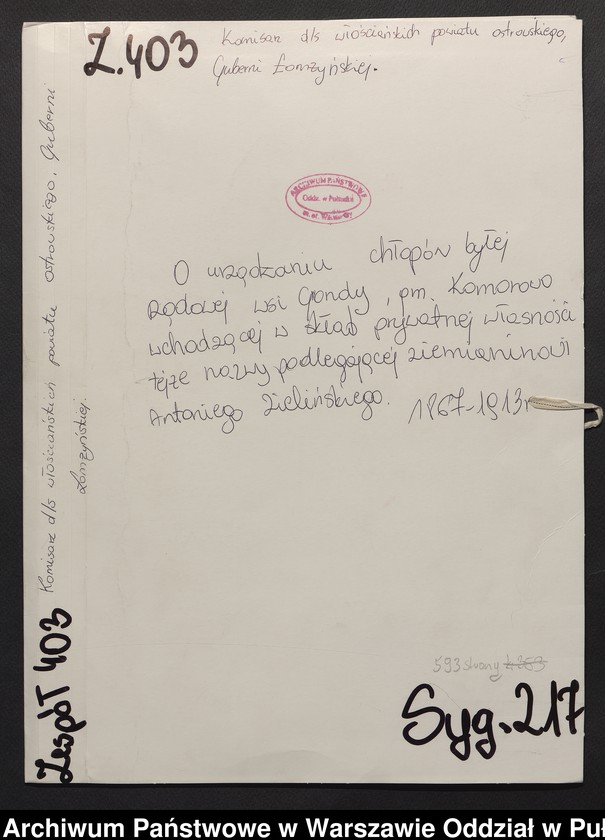 Z.403
Komisarz d/s włościańskich powiatu ostrowskiego,
Guberni Łomżyńskiej.
ARCHIWUM PAŃSTWOWE
Oddz. w Pułtusku
m. st. Warszawy
O urządzaniu chłopów byłej
rządowej wsi Gondy, gm. Komorowo
wchodzącej w skład prywatnej własności
tejże nazwy podlegającej ziemianinowi
Antoniego Zielińskiego. 1867-1913r
593 strony
Syg.217
Zespół 403 Komisarz d/s włościańskich powiatu ostrowskiego, Guberni
Łomżyńskiej.
Archiwum Państwowe w Warszawie Oddział w Puł